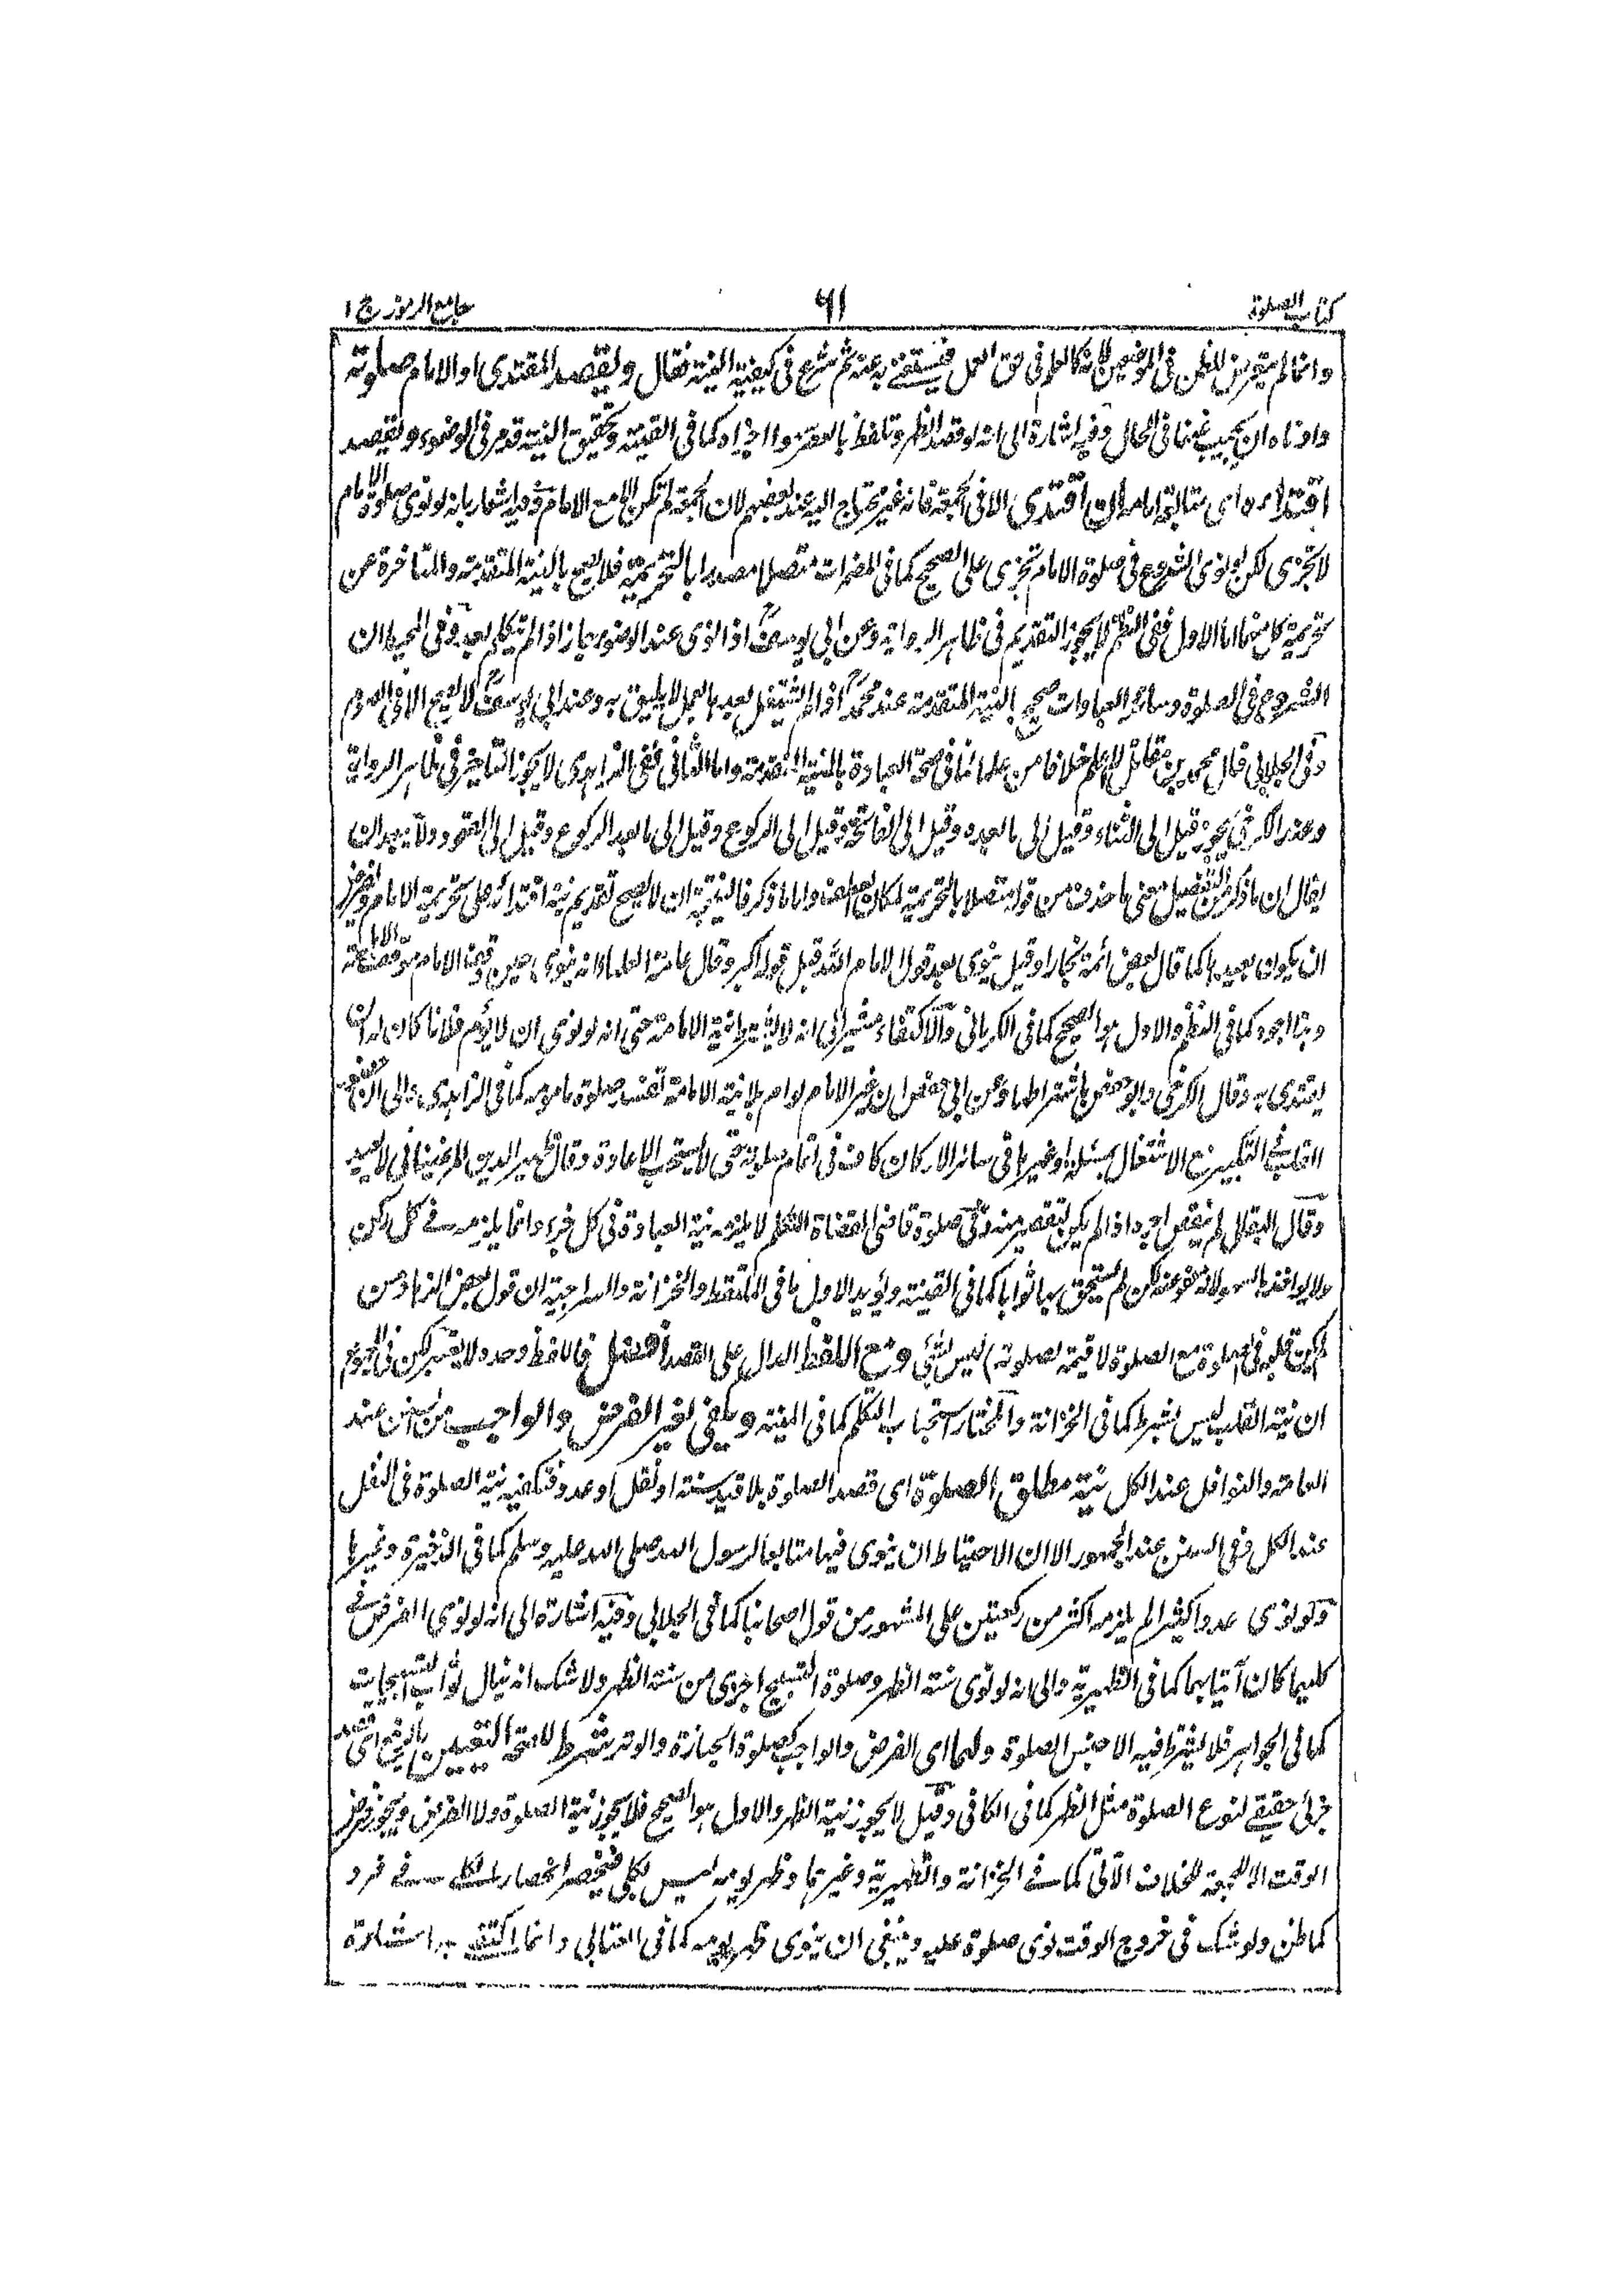 كتاب الصلوة
٦١
جامع الرموز ج ١
وانما لم يتعرض للظن في الموضعين لانه كالعلم في حق العمل فيستغنى به عنه ثم شرع في كيفية النية فقال ويقصد المقتدى او الامام صلوته
وادناه ان يجيب عنها في الحال وفيه اشارة الى انه لو قصد الظهر وتلفظ بالعصر سهوا اجزاه كما في القنية وتحقيق النية قدم في الوضوء ويقصد
اقتداءه اى متابعة امامه ان اقتدى الا في الجمعة فانه غير محتاج اليه عند بعضهم لان الجمعة لم تكن الا مع الامام وفيه اشعار بانه لو نوى صلوة الامام
لا تجزى لكن لو نوى الشروع في صلوة الامام تجزى على الصحيح كما في المضمرات متصلا مصدرا بالتحريمة فلا يصح بالنية المتقدمة والمتأخرة عن
تحريمة اما الاول ففى النظم لا يجوز التقديم في ظاهر الرواية وعن ابى يوسف اذا نوى عند الوضوء جاز اذا لم يتكلم بعده وفي المحيط ان
الشروع في الصلوة وسائر العبادات صحيح بالنية المتقدمة عند محمد اذا لم يشتغل بعدها بعمل لا يليق به وعند ابى يوسف لا يصح الا في الصوم
وفي الجلابى قال محمد بن مقاتل لا اعلم خلافا من علمائنا في صحة العبادة بالنية المتقدمة واما الثانى ففى الزاهدى لا يجوز التأخير في ظاهر الرواية
وعند الكرخى يجوز قيل الى الثناء وقيل الى ما بعده وقيل الى الفاتحة وقيل الى الركوع وقيل الى ما بعد الركوع وقيل الى القعود ولا يبعد ان
يقال ان ما ذكر من التفصيل معنى ما حذف من قوله متصلا بالتحريمة واما ما ذكر ان لا يصح تقديم نية اقتدائه على تحريمة الامام
ان يكون بعيدها كما قال بعض ائمة بخارا وقيل ينوى بعد قول الامام الله قبل قوله اكبر وقال عامة العلماء انه ينوى حين وقف الامام موقف الامامة
وهذا اجود كما في النظم والاول هو الصحيح كما في الكرمانى والاكتفاء مشير الى انه لا يشترط نية الامامة حتى انه لو نوى ان لا يؤم فلانا كان له ان
يقتدى به وقال الكرخى وابو حفص باشتراطها وعن ابى حفص ان غير الامام لو ام بلا نية الامامة تفسد صلوة مامومه كما في الزاهدى والى ان
القلب في التكبير مع الاشتغال بمسئلة او غيرها في سائر الاركان كاف في اتمام صلوته حتى لا يستحب الاعادة وقال ظهير الدين المرغينانى لا يعيد
وقال البقالى لم ينقص اجره اذا لم يكن لتقصير منه وفي صلوة قاضى القضاة المتكلم لا يلزمه نية العبادة في كل جزء وانما يلزمه في كل ركن
ولا يؤاخذ بالسهو لانه معفو عنه لكن لم يستحق بها ثوابا كما في القنية ويؤيد الاول ما في الملتقط والخزانة والسراجية ان قول بعض الزهاد من
لم يكن قلبه في الصلوة مع الصلوة لا قيمة لصلوته) ليس بشئ ومع اللفظ الدال على القصد افضل فاللفظ وحده لا يعتبر لكن في المجموع
ان نية القلب ليس بشرط كما في الخزانة والمختار استحباب التكلم كما في المنية ويكفى لغير الفرض والواجب من السنن عند
العامة والنوافل عند الكل نية مطلق الصلوة اى قصد الصلوة بلا قيد سنة او نفل او عدد فتكفيه نية الصلوة في النفل
عند الكل وفي السنن عند الجمهور الا ان الاحتياط ان ينوى فيها متابعا لرسول الله صلى الله عليه وسلم كما في الذخيرة وغيرها
ولو نوى عددا كثيرا لم يلزمه اكثر من ركعتين على المشهور من قول اصحابنا كما في الجلابى وفيه اشارة الى انه لو نوى الفرض في
كليهما كان آتيا بهما كما في الظهيرية والى انه لو نوى سنة الظهر وصلوة التسبيح اجزى من سنة الظهر ولا شك انه ينال ثواب التسبيحات
كما في الجواهر فلا يشترط فيه الا جنس الصلوة ولهما اى الفرض والواجب كصلوة الجنازة والوتر شرط لا صحة التعيين
جزئ حقيقى لنوع الصلوة مثل الظهر كما في الكافى وقيل لا يجوز نية الظهر والاول هو الصحيح فلا يجوز نية الصلوة ولا الفرض ويجوز فرض
الوقت الا الجمعة للخلاف الآتى كما في الخزانة والظهيرية وغيرهما وظهر يومه ليس بكلى فيخصر انحصار الكلى في فرد
كما ظن ولو شك في خروج الوقت نوى صلوة عليه وينبغى ان ينوى ظهر يومه كما في العتابى وانما اكتفى به اشارة